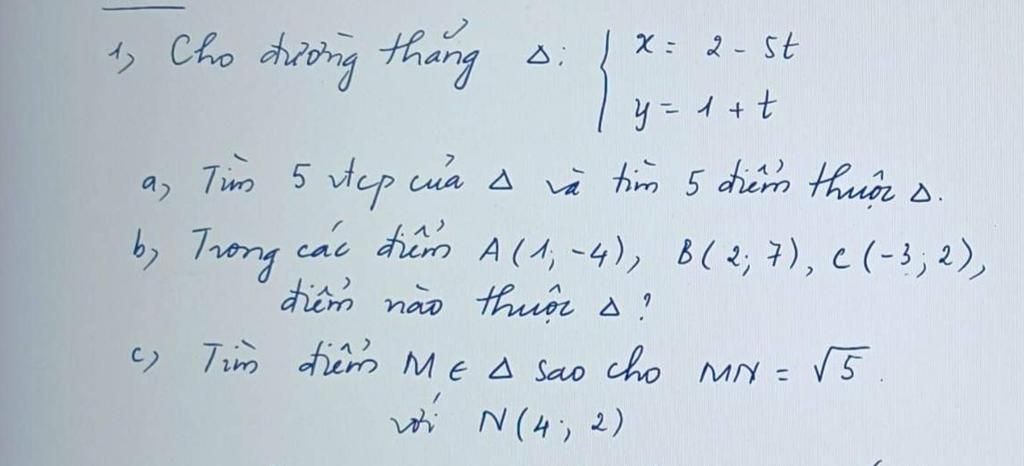 1, Cho đường thẳng Δ: { x = 2 - 5t
y = 1 + t
a, Tìm 5 vtcp của Δ và tìm 5 điểm thuộc Δ.
b, Trong các điểm A(1; -4), B(2; 7), C(-3; 2),
điểm nào thuộc Δ?
c, Tìm điểm M ∈ Δ sao cho MN = √5.
với N(4; 2)